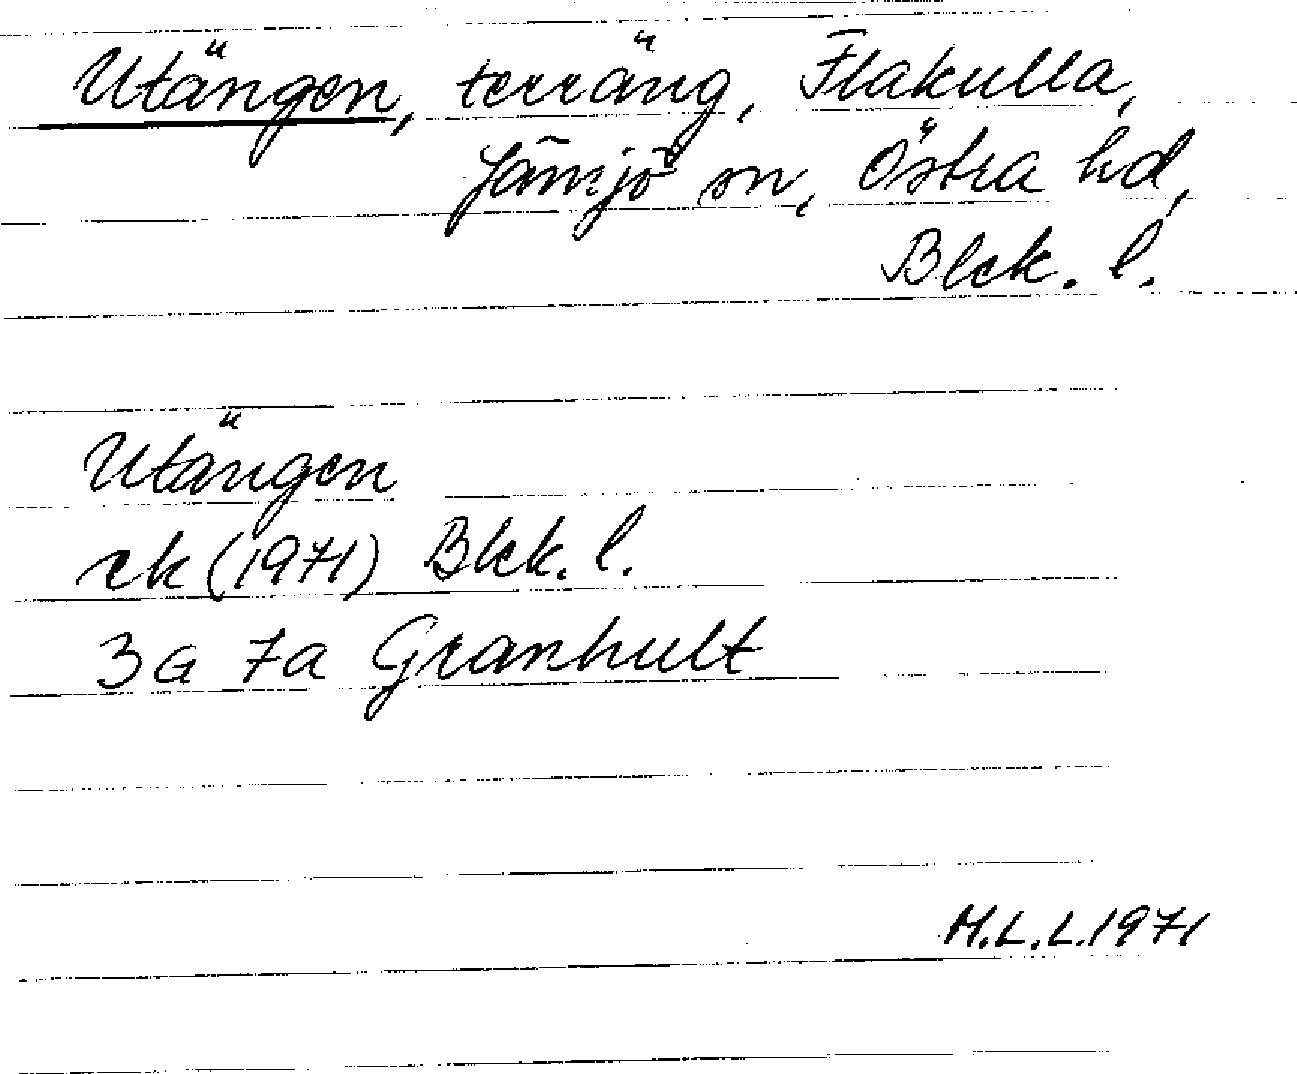 Utängen, terräng, Flakulla,
Jämjö sn, Östra hd,
Blek. l.
Utängen
rk (1971) Blek. l.
3G 7a Granhult
M.L.L. 1971